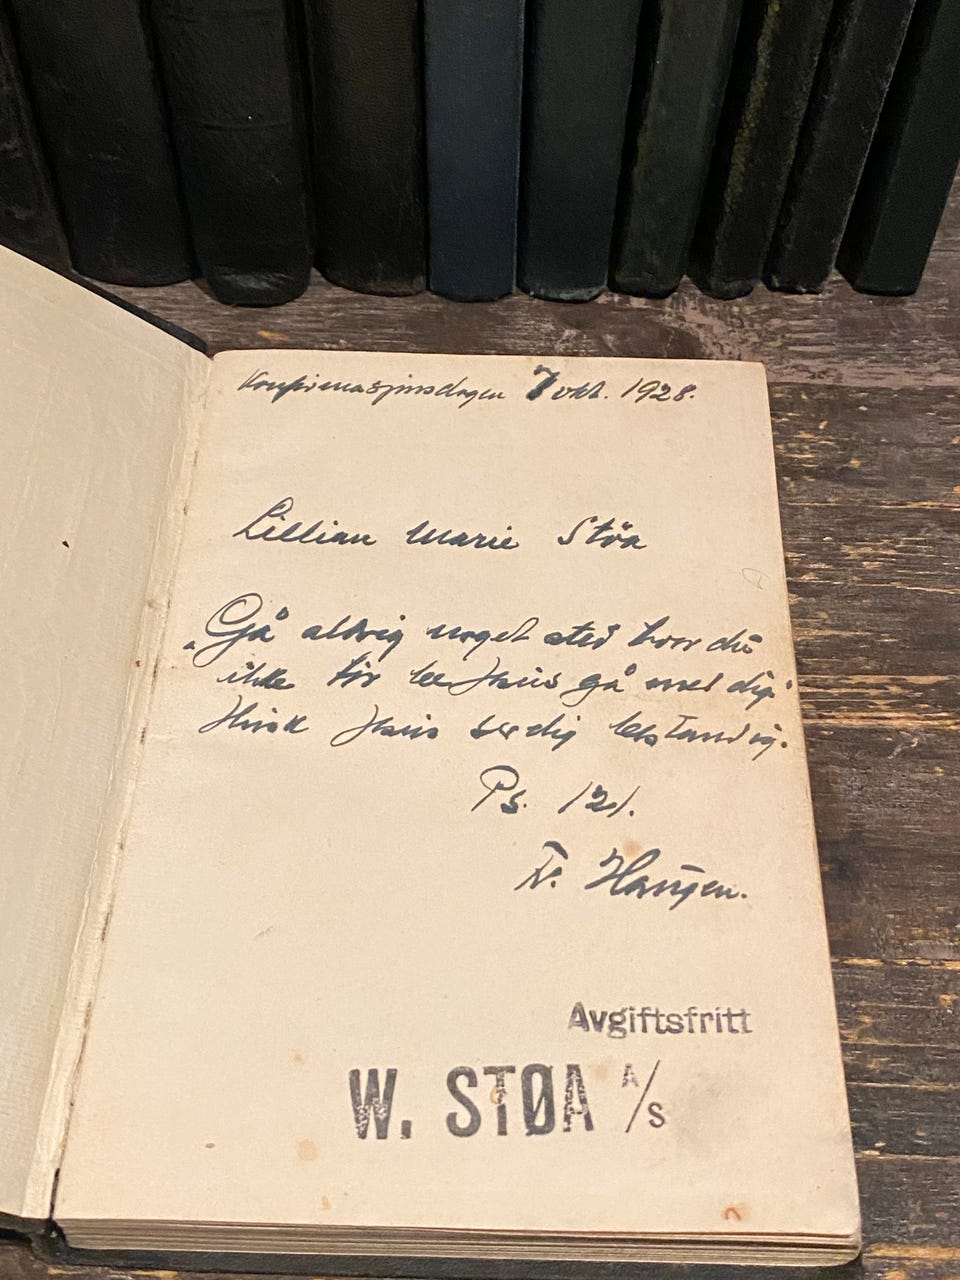 Konfirmasjonsdagen 7 okt. 1928.
Lillian Marie Støa
"Gå aldrig noget sted hvor du
ikke tør be Jesus gå med dig"
Husk Jesus ser dig bestandig.
Ps. 121.
Fr. Haugen.
Avgiftsfritt
W. STØA A/S